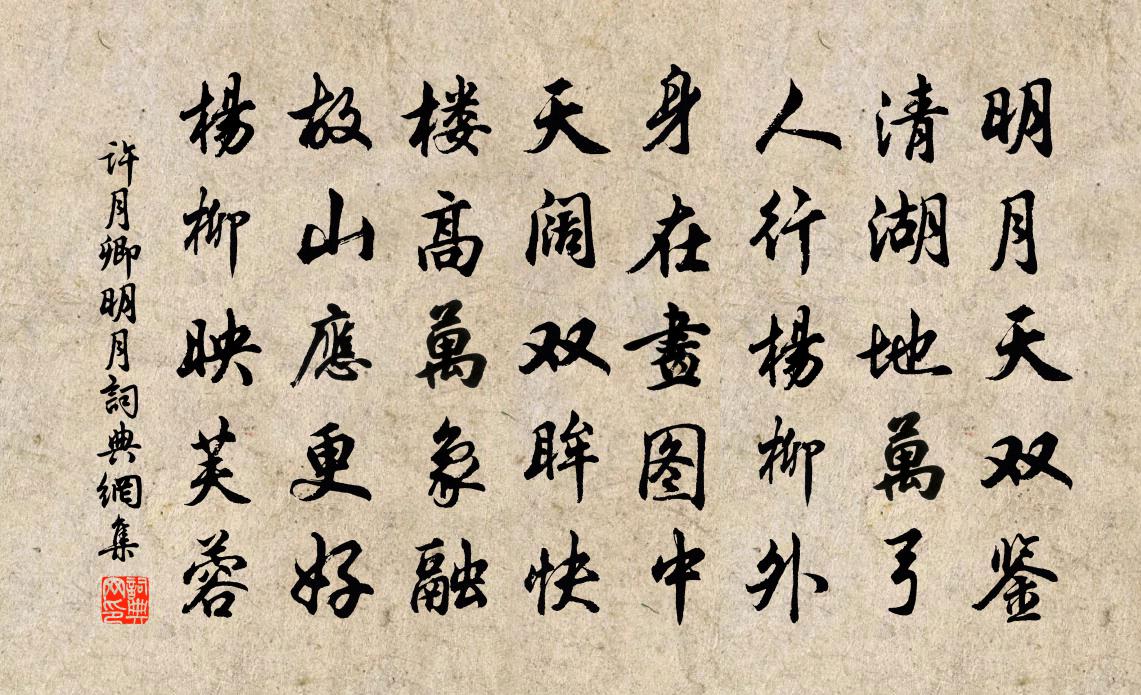 明月天双鉴
清湖地萬弓
人行楊柳外
身在畫图中
天阔双眸快
楼高萬象融
故山應更好
楊柳映芙蓉
许月卿明月詞典網集
詞典网印